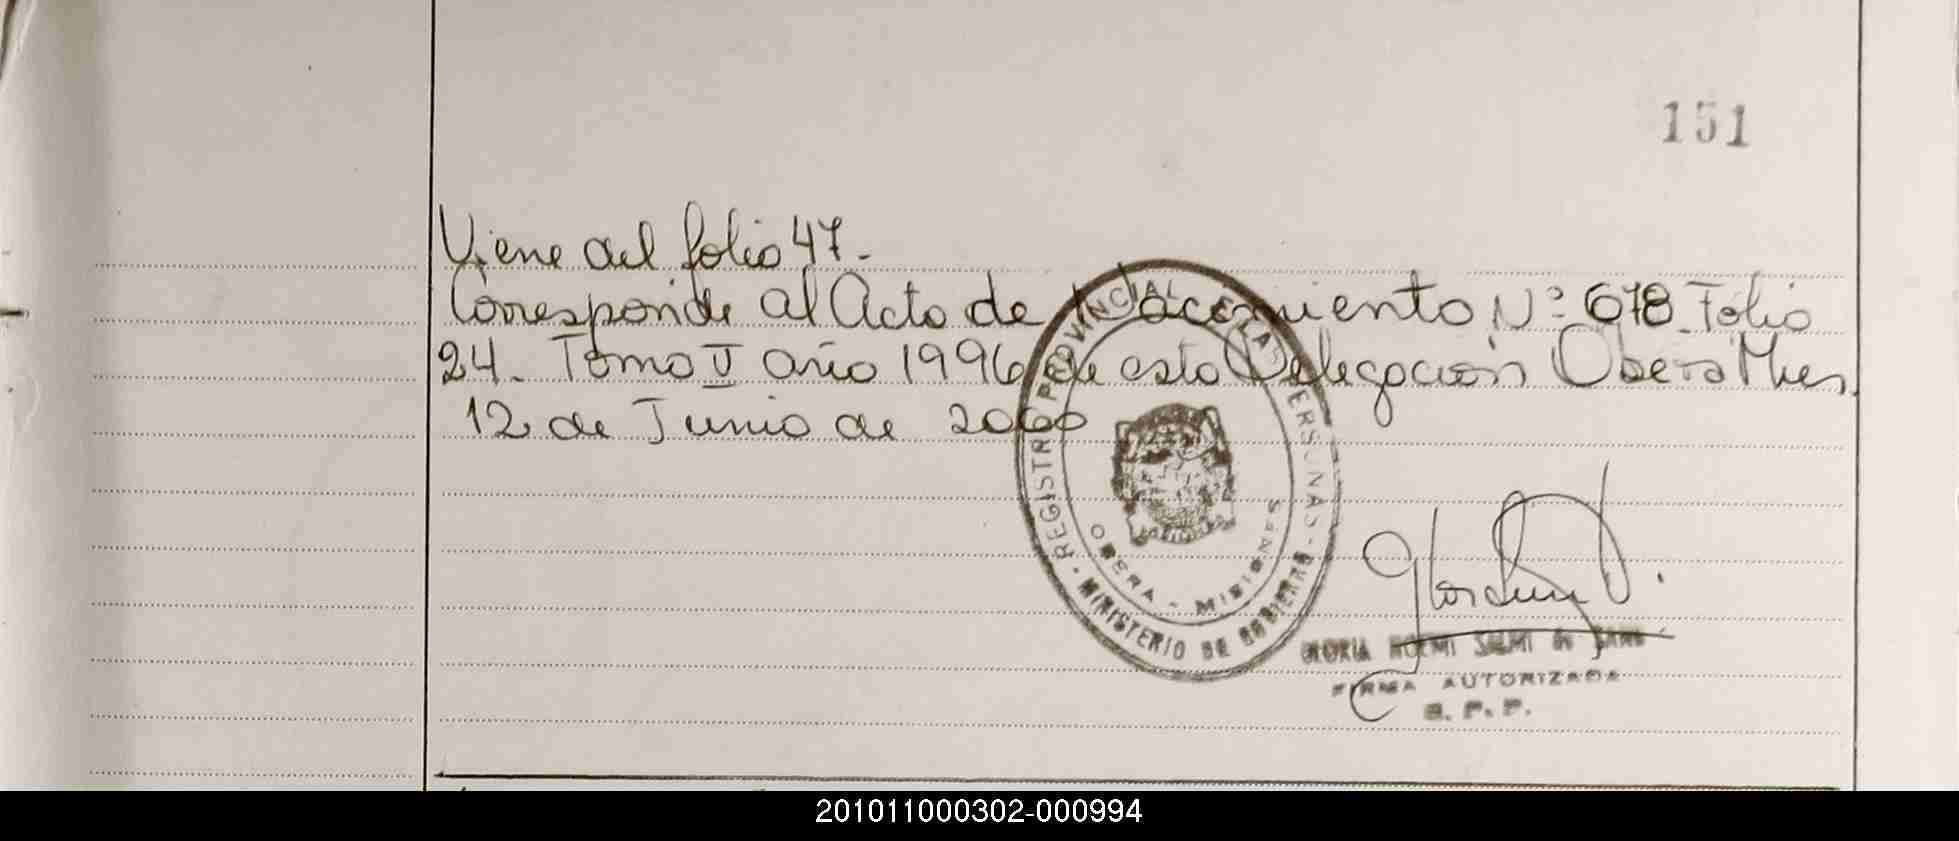 151
Viene del folio 47.-
Corresponde al Acta de Nacimiento Nº 678 Folio
24. Tomo V año 1996 de esta Delegación Obera Mnes
12 de Junio de 2000
REGISTRO PROVINCIAL DE LAS PERSONAS -
MINISTERIO DE GOBIERNO
OBERA - MISIONES
GLORIA NOEMI SALMI de
FIRMA AUTORIZADA
R. P. P.
201011000302-000994